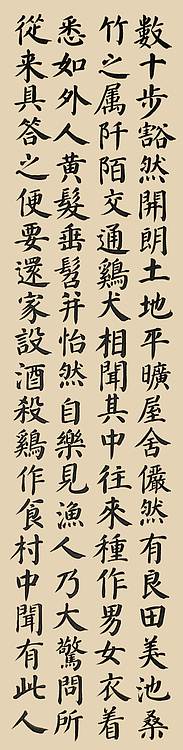 數十步豁然開朗土地平曠屋舍儼然有良田美池桑
竹之属阡陌交通鷄犬相聞其中往來種作男女衣着
悉如外人黄髮垂髫并怡然自樂見漁人乃大驚問所
從来具答之便要還家設酒殺鷄作食村中聞有此人